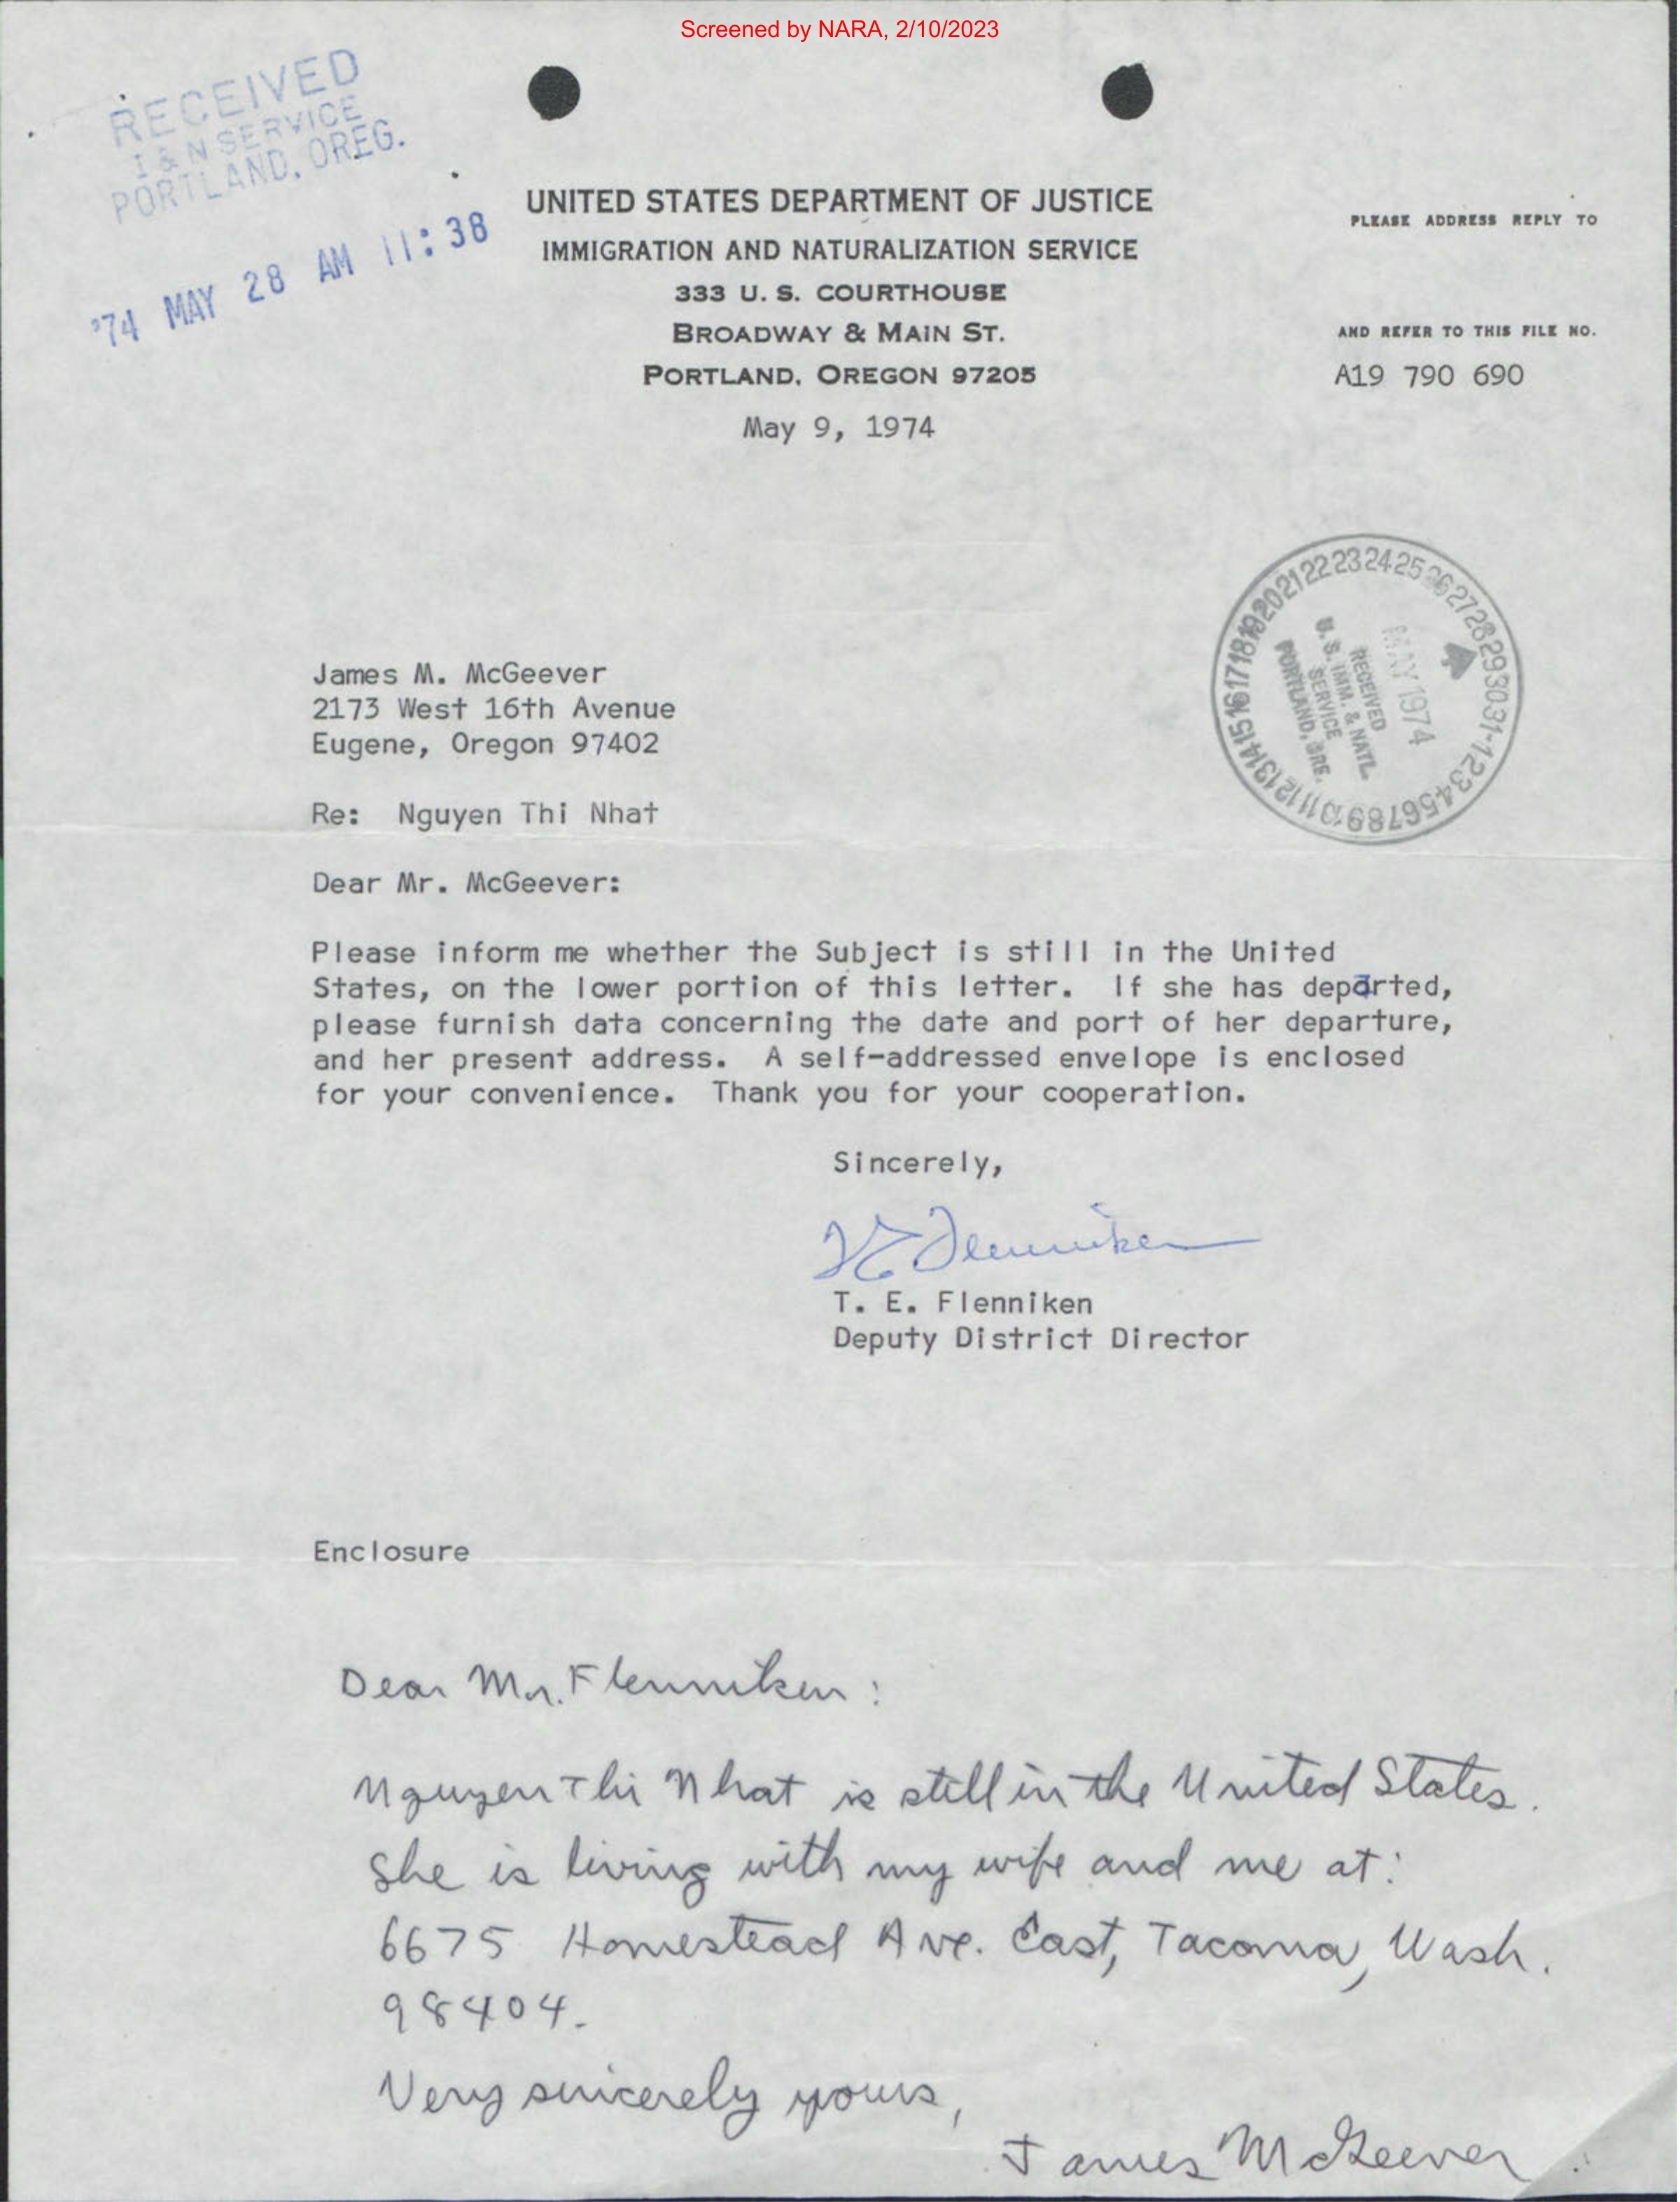 Screened by NARA, 2/10/2023
RECEIVED
I & N SERVICE
PORTLAND, OREG.
'74 MAY 28 AM 11:38
UNITED STATES DEPARTMENT OF JUSTICE
IMMIGRATION AND NATURALIZATION SERVICE
333 U. S. COURTHOUSE
BROADWAY & MAIN ST.
PORTLAND, OREGON 97205
PLEASE ADDRESS REPLY TO
AND REFER TO THIS FILE NO.
A19 790 690
May 9, 1974
1 2 3 4 5 6 7 8 9 10 11 12 13 14 15 16 17 18 19 20 21 22 23 24 25 26 27 28 29 30 31
MAY 1974
RECEIVED
U. S. IMM. & NATL.
SERVICE
PORTLAND, ORE.
James M. McGeever
2173 West 16th Avenue
Eugene, Oregon 97402
Re: Nguyen Thi Nhat
Dear Mr. McGeever:
Please inform me whether the Subject is still in the United
States, on the lower portion of this letter. If she has departed,
please furnish data concerning the date and port of her departure,
and her present address. A self-addressed envelope is enclosed
for your convenience. Thank you for your cooperation.
Sincerely,
T E Flenniken
T. E. Flenniken
Deputy District Director
Enclosure
Dear Mr. Flenniken:
Nguyen Thi Nhat is still in the United States.
She is living with my wife and me at:
6675 Homestead Ave. East, Tacoma, Wash.
98404.
Very sincerely yours,
James McGeever